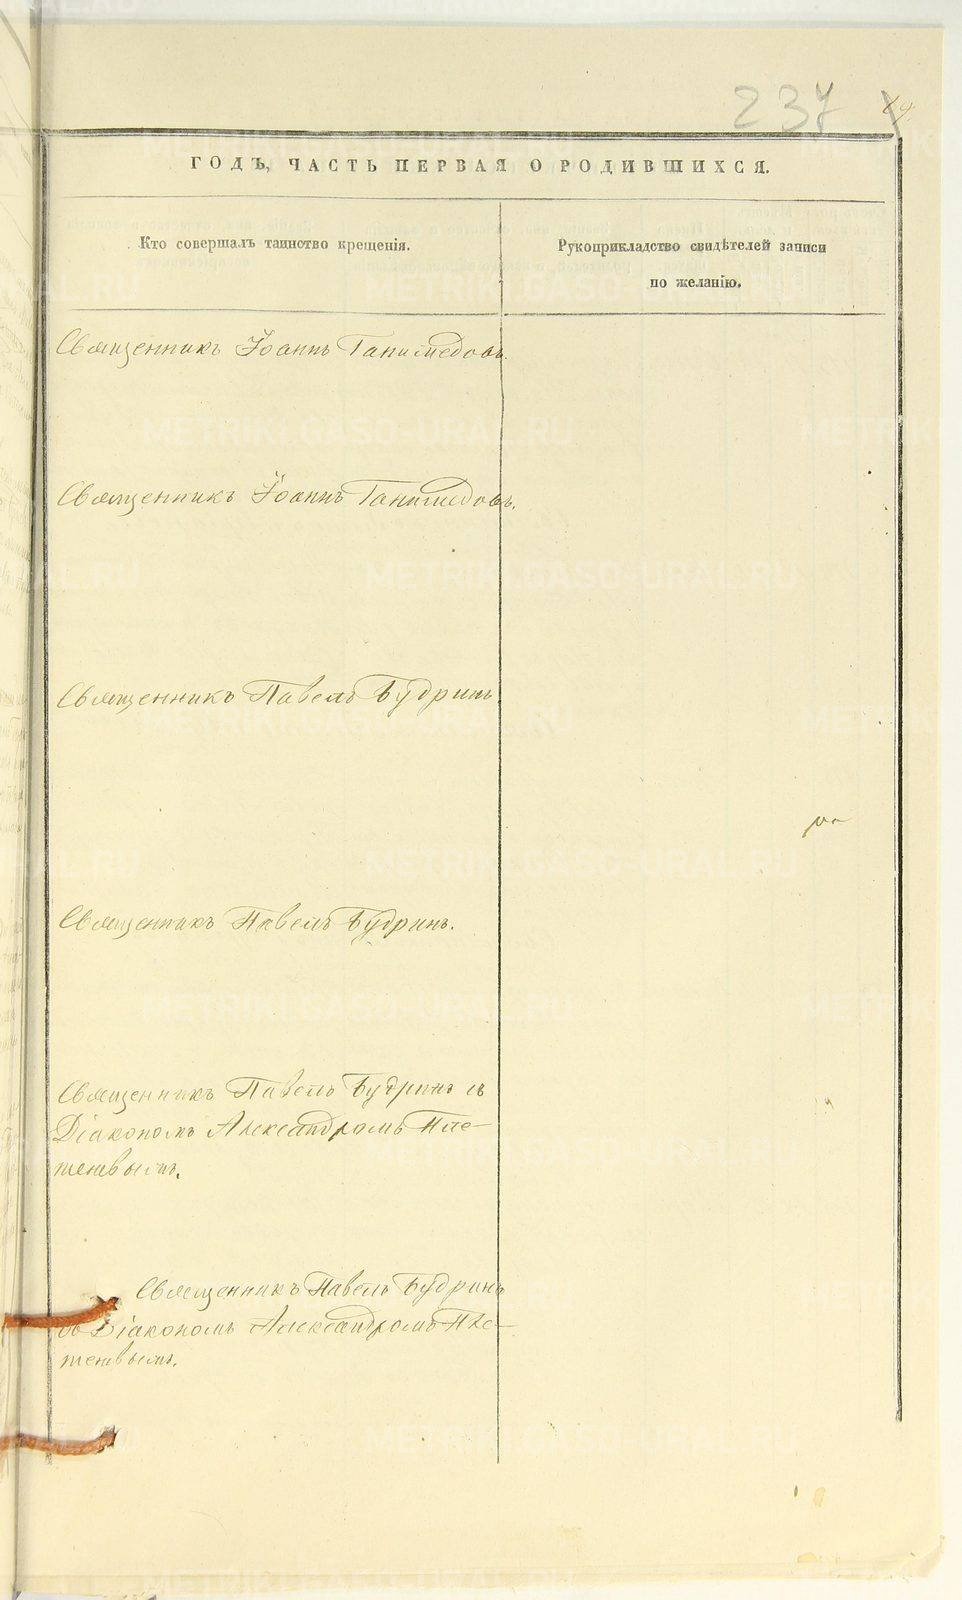 237
ГОДЪ, ЧАСТЬ ПЕРВАЯ О РОДИВШИХСЯ.
Кто совершалъ таинство крещенія.
Рукоприкладство свидѣтелей записи
по желанію.
Священникъ Іоаннъ Ганимедовъ.
Священникъ Іоаннъ Ганимедовъ.
Священникъ Павелъ Будринъ.
Священникъ Павелъ Будринъ.
Священникъ Павелъ Будринъ съ
Діакономъ Александромъ Пле-
теневымъ.
Священникъ Павелъ Будринъ
съ Діакономъ Александромъ Пле-
теневымъ.
METRIKI.GASO-URAL.RU